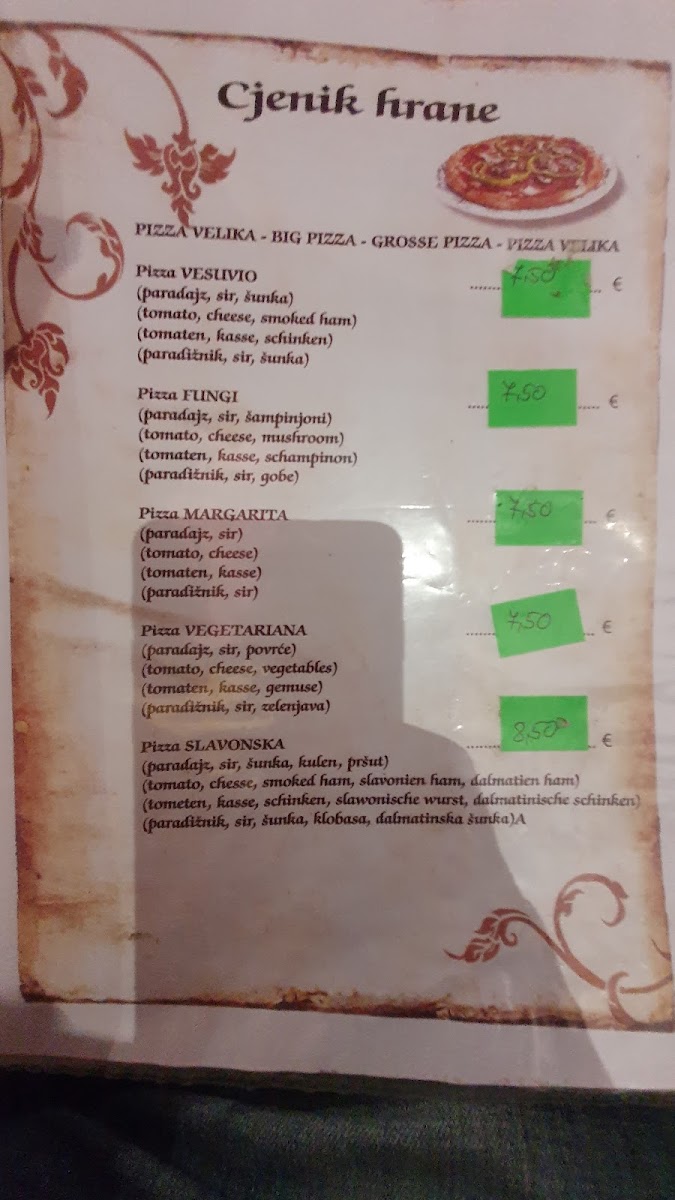 Cjenik hrane
PIZZA VELIKA - BIG PIZZA - GROSSE PIZZA - PIZZA VELIKA
Pizza VESUVIO ...... 7,50 ... €
(paradajz, sir, šunka)
(tomato, cheese, smoked ham)
(tomaten, kasse, schinken)
(paradižnik, sir, šunka)
Pizza FUNGI .... 7,50 ..... €
(paradajz, sir, šampinjoni)
(tomato, cheese, mushroom)
(tomaten, kasse, schampinon)
(paradižnik, sir, gobe)
Pizza MARGARITA ...... 7,50 .... €
(paradajz, sir)
(tomato, cheese)
(tomaten, kasse)
(paradižnik, sir)
Pizza VEGETARIANA ...... 7,50 ... €
(paradajz, sir, povrće)
(tomato, cheese, vegetables)
(tomaten, kasse, gemuse)
(paradižnik, sir, zelenjava)
Pizza SLAVONSKA ....... 8,50 ... €
(paradajz, sir, šunka, kulen, pršut)
(tomato, chesse, smoked ham, slavonien ham, dalmatien ham)
(tometen, kasse, schinken, slawonische wurst, dalmatinische schinken)
(paradižnik, sir, šunka, klobasa, dalmatinska šunka)A